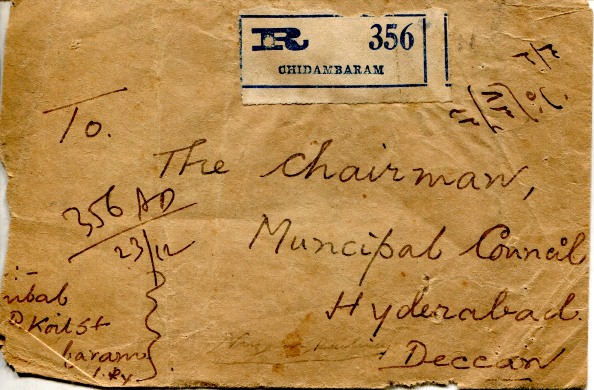 R 356
CHIDAMBARAM
To.
The Chairman,
Muncipal Council
Hyderabad
Deccan
356 AD
23/12
Koil St